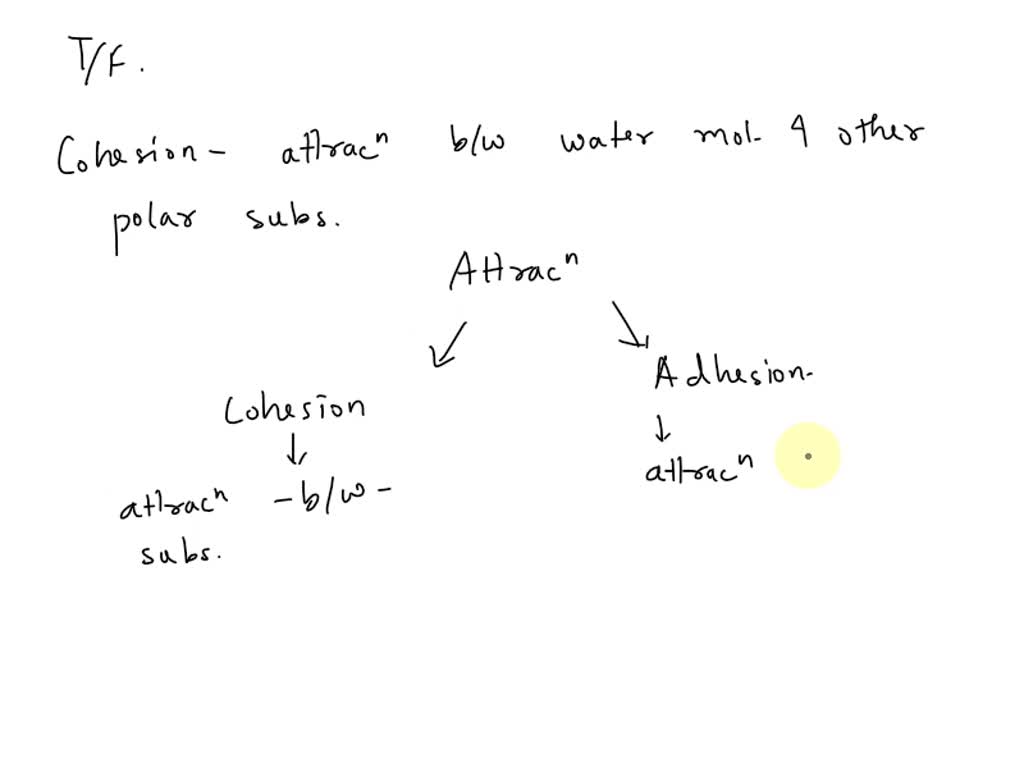 T/F.
Cohesion - attracⁿ b/w water mol. & other
polar subs.
Attracⁿ
Cohesion
attracⁿ - b/w -
subs.
Adhesion.
attracⁿ